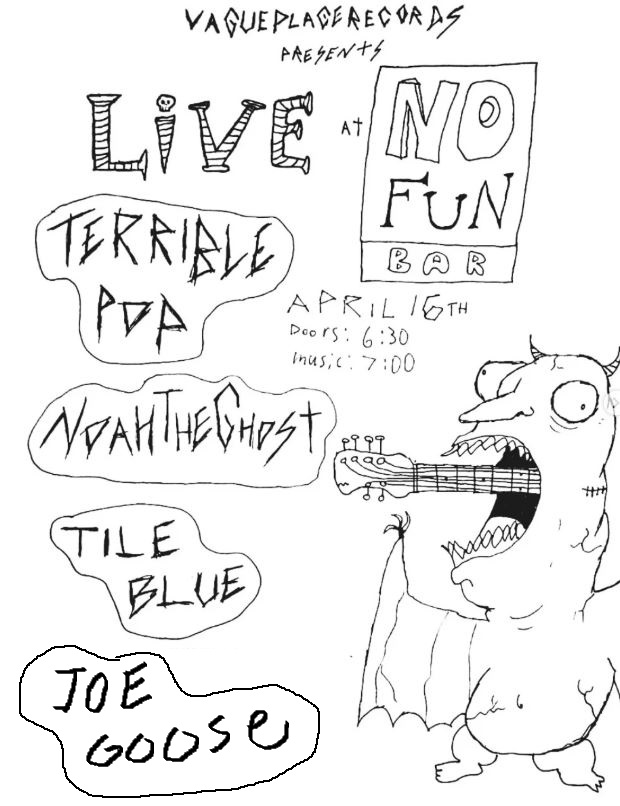 VAGUEPLACERECORDS
PRESENTS
LiVE
AT
NO
FUN
BAR
TERRIBLE
POP
APRIL 16TH
Doors: 6:30
music: 7:00
NOAHTHEGHOST
TILE
BLUE
JOE
GOOSe